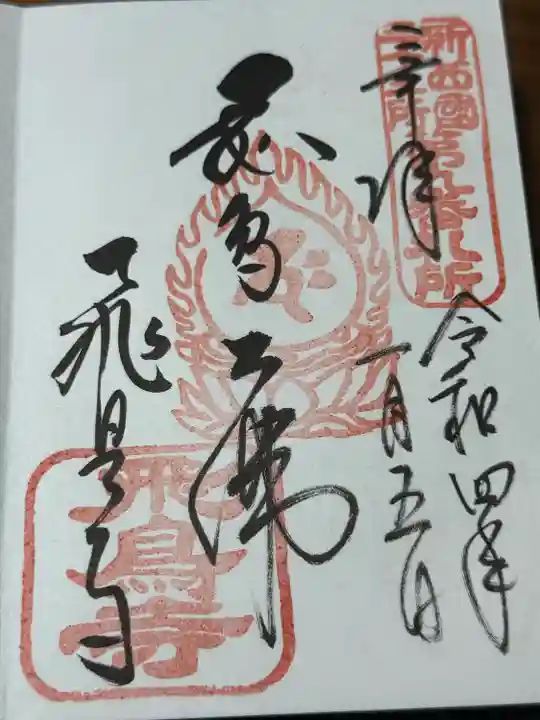 新西國第九番札所
奉拝
令和四年
一月五日
飛鳥大佛
飛鳥寺
飛鳥寺